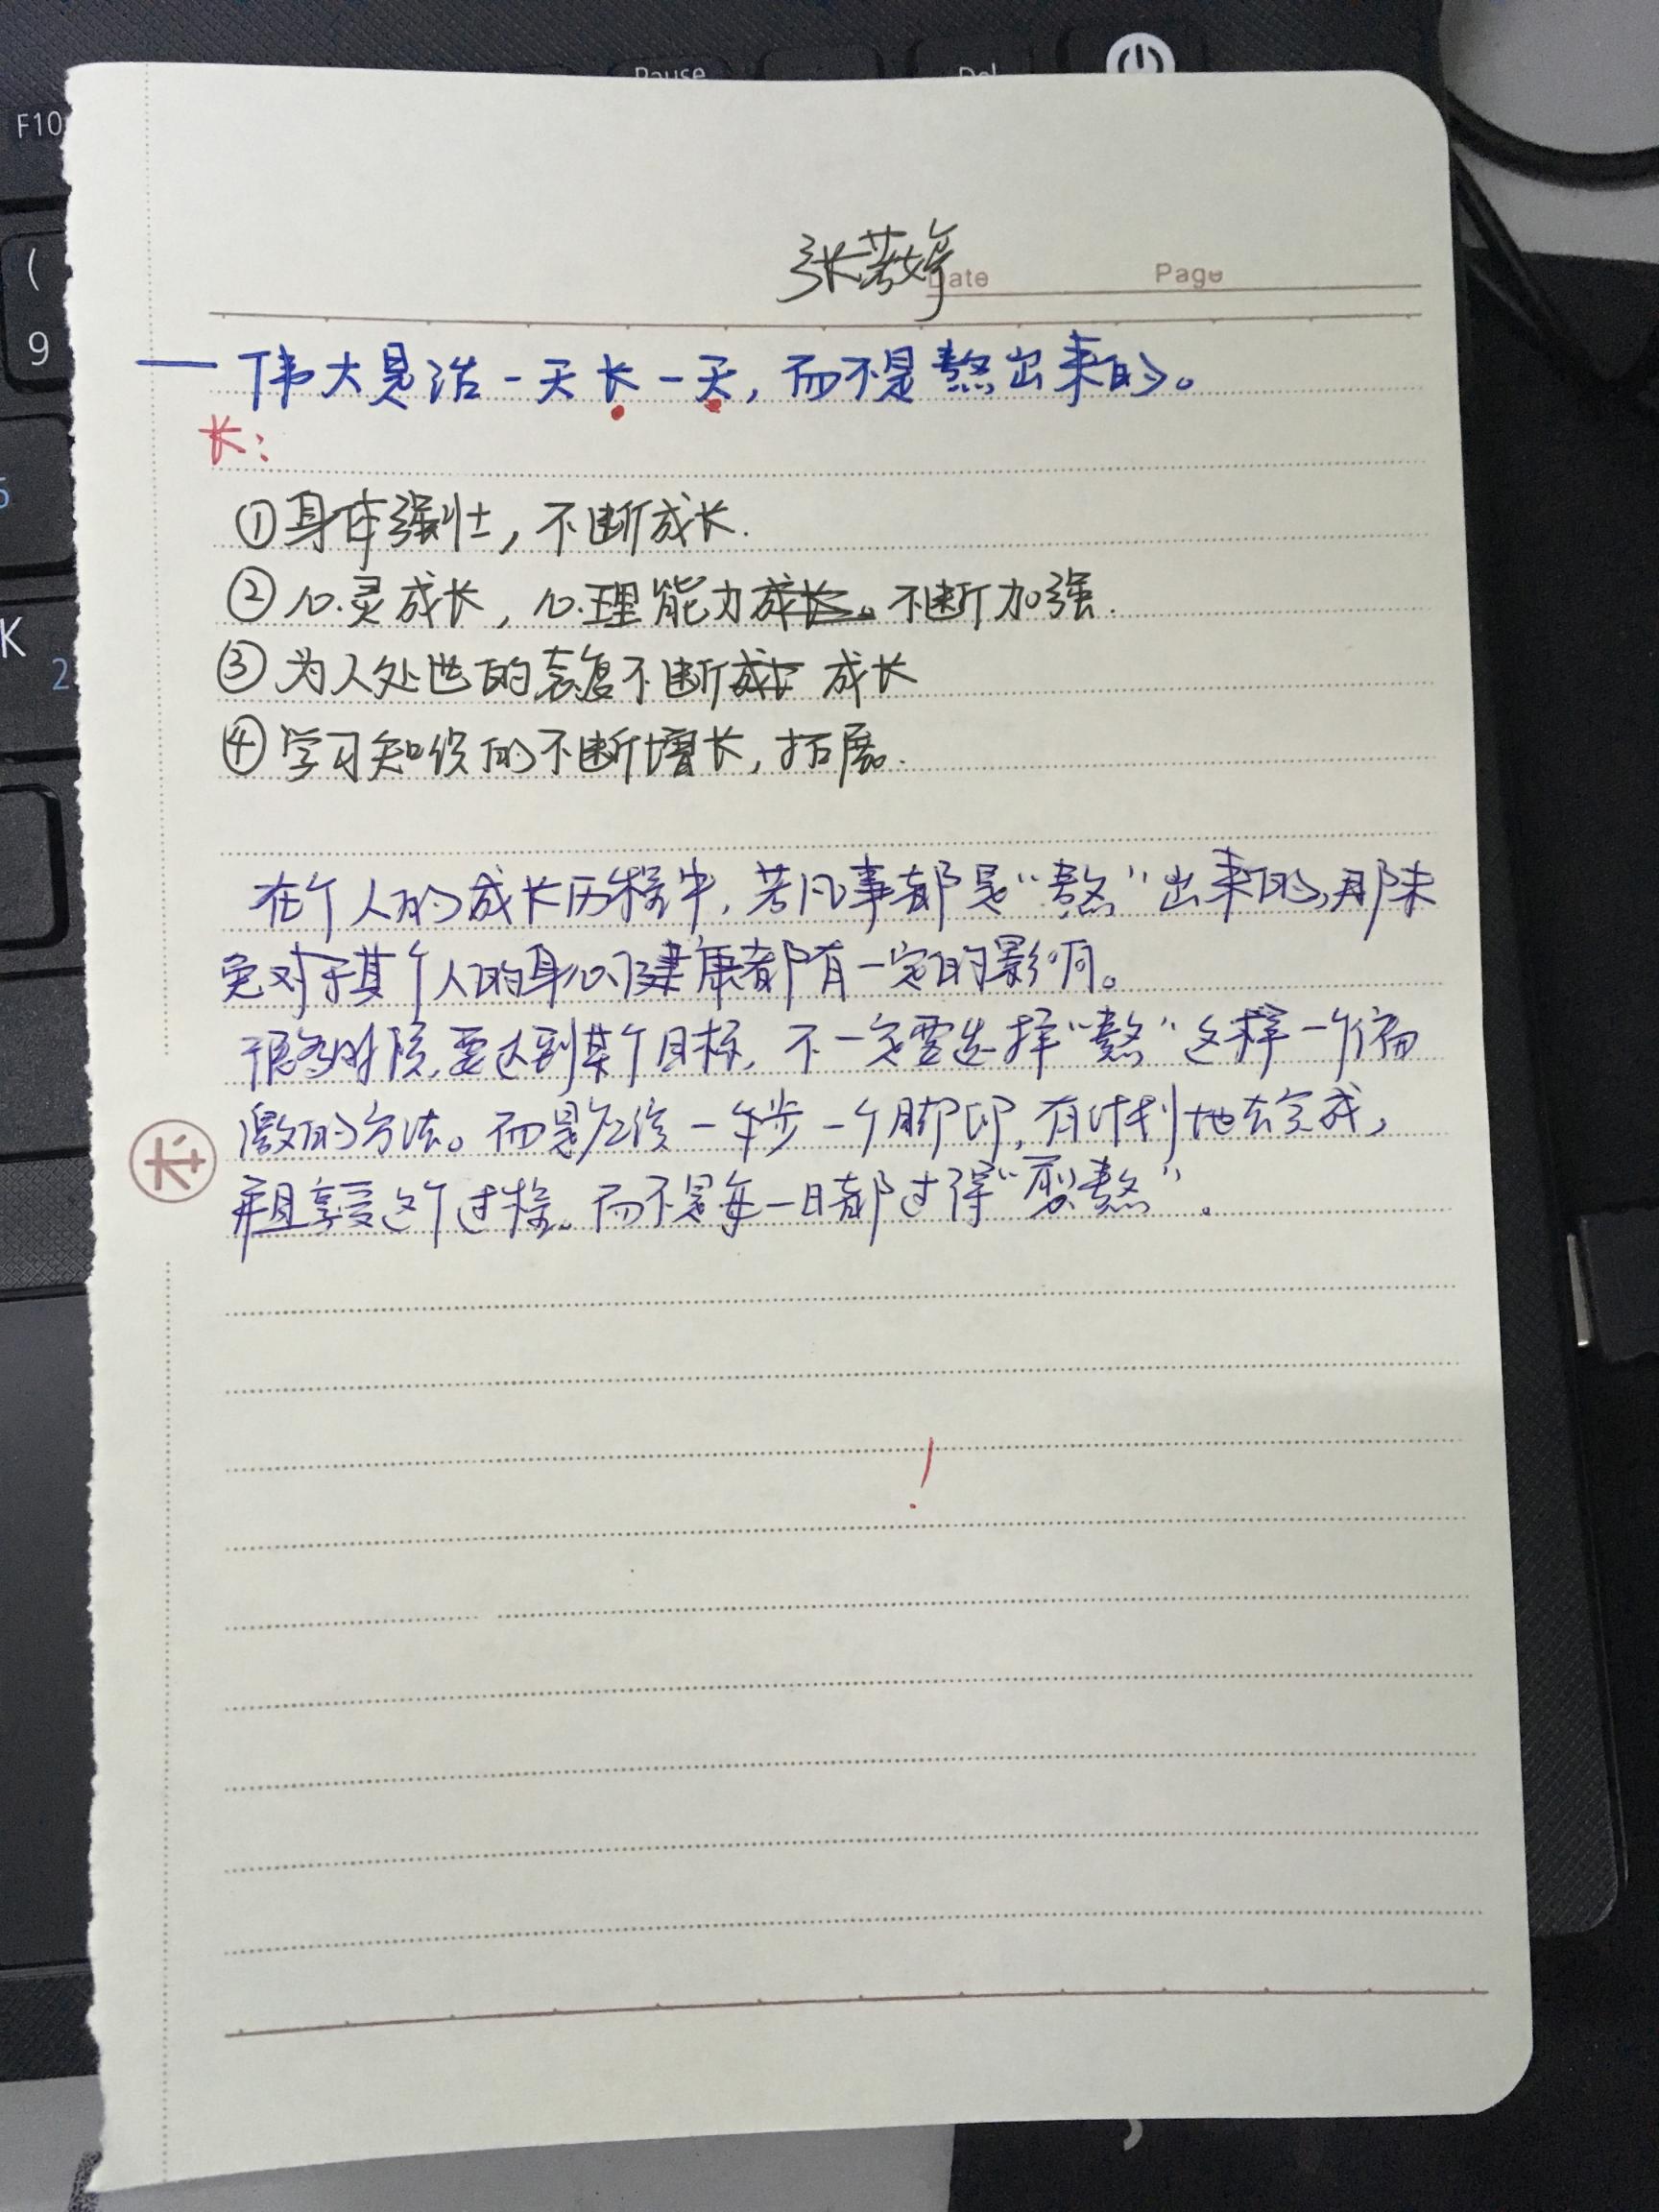 Pause
Del
F10
(
9
5
K
2
张若婷
Date Page
一 伟大是活一天长一天，而不是熬出来的。
长：
①身体强壮，不断成长.
②心灵成长，心理能力成长。不断加强.
③为人处世的态度不断成长 成长
④学习知识的不断增长，拓展.
在个人的成长历程中，若凡事都是“熬”出来的，那未
免对于其个人的身心健康都有一定的影响。
很多时候，要达到某个目标，不一定要选择“熬”这样一个偏
激的方法。而是应该一步一个脚印，有计划地去完成，
长
并且享受这个过程。而不是每一日都过得“煎熬”。
!